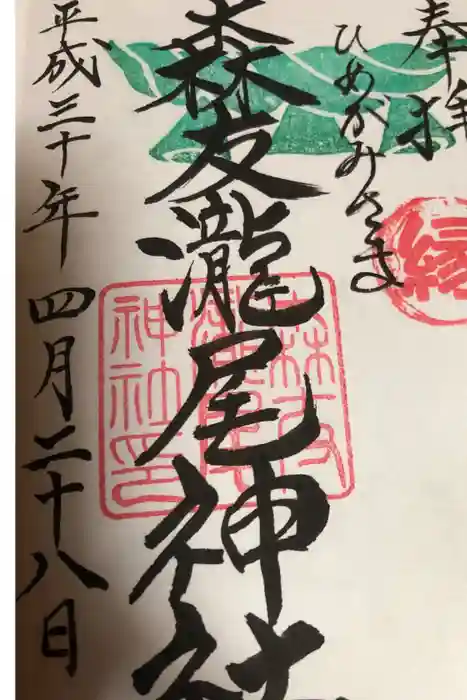 奉拝
ひめがみさま
縁
森友瀧尾神社
森友瀧尾神社印
平成三十年四月二十八日